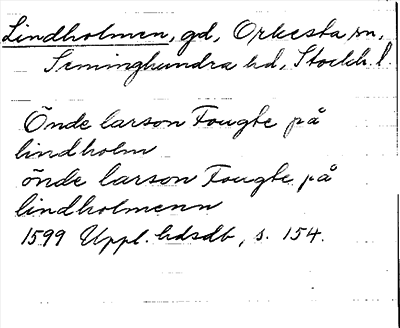 Lindholmen, gd, Orkesta sn,
Seminghundra hd, Stockh. l.
Önde larson Fougte på
lindholm
önde larson Fougte på
lindholmenn
1599 Uppl. hdsdb, s. 154.